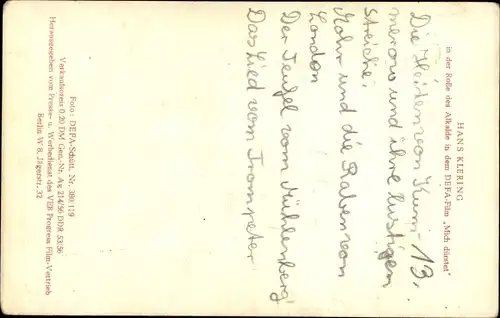 HANS KLERING
in der Rolle des Alkalde in dem DEFA-Film „Mich dürstet“
13.
Die Heiden von Kum-
merow und ihre lustigen
Streiche.
Mohr und die Raben von
London
Der Teufel vom Mühlenberg
Das Lied vom Trompeter
Foto: DEFA-Schütt, Nr. 389/119
Verkaufspreis 0,20 DM Gen.-Nr. Ag 214/56 DDR 53/56
Herausgegeben vom Presse- u. Werbedienst des VEB Progress Film-Vertrieb
Berlin W 8, Jägerstr. 32